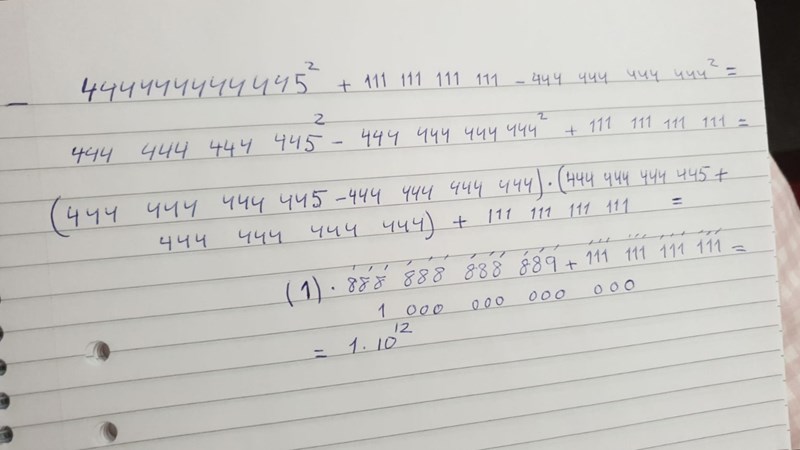 444444444445² + 111 111 111 111 - 444 444 444 444² =
444 444 444 445² - 444 444 444 444² + 111 111 111 111 =
(444 444 444 445 - 444 444 444 444) · (444 444 444 445 +
444 444 444 444) + 111 111 111 111 =
(1) · 888 888 888 889 + 111 111 111 111 =
1 000 000 000 000
= 1 · 10¹²